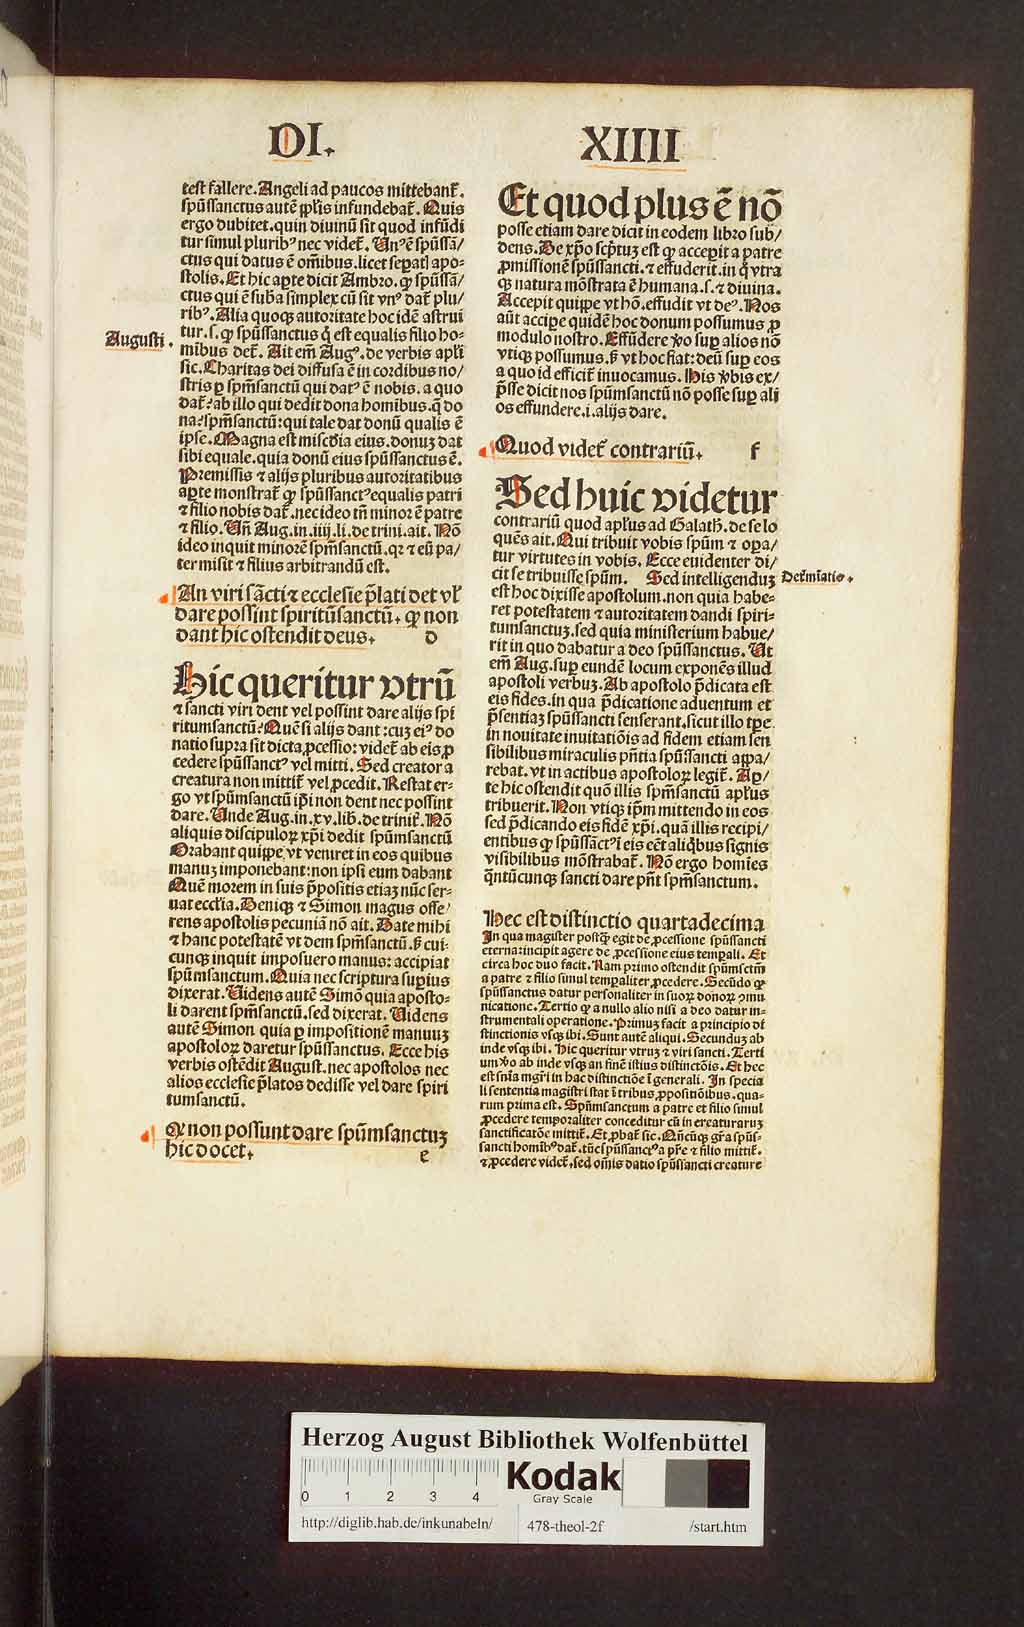 DI.
XIIII
test fallere. Angeli ad paucos mittebant᷑.
spūssanctus autē ꝓplis infundebat᷑. Quis
ergo dubitet. quin diuinū sit quod infūdi
tur simul pluribꝰ nec videt᷑. Unꝰ ē spūssā/
ctus qui datus ē om̄ibus. licet seꝑatī apo⸗
stolis. Et hic aꝑte dicit Ambro. ꝙ spūssā/
ctus qui ē suba simplex cū sit vnꝰ dat᷑ plu/
ribꝰ. Alia quoqꝫ autoritate hoc idē astrui
tur. s. ꝙ spūssanctus q̄ est equalis filio ho⸗
mībus det᷑. Ait em̄ Augꝰ. de verbis apl̄i
Augusti.
sic. Charitas dei diffusa ē in cordibus no/
stris ꝑ spm̄sanctū qui datꝰ ē nobis. a quo
dat᷑? ab illo qui dedit dona homībus. q̄ do
na? spm̄sanctū: qui tale dat donū qualis ē
ipse. Magna est mi̅scdia eius. donuꝫ dat
sibi equale. quia donū eius spūssanctus ē.
Premissis ⁊ alijs pluribus autoritatibus
aꝑte monstrat᷑ ꝙ spūssanctꝰ equalis patri
⁊ filio nobis dat᷑. nec ideo tm̄ minor ē patre
⁊ filio. Un̄ Aug. in. iiij. li. de trini. ait. Nō
ideo inquit minorē spm̄sanctū. qꝛ ⁊ eū pa/
ter misit ⁊ filius arbitrandū est.
An viri sācti ⁊ ecclesie p̄lati det vl᷑
dare possint spiritūsanctū. ꝙ non
dant hic ostendit deus. D
Hic queritur vtrū
⁊ sancti viri dent vel possint dare alijs spi
ritumsanctū? Quē si alijs dant: cuꝫ eiꝰ do
natio supra sit dicta ꝓcessio: videt᷑ ab eis ꝓ
cedere spūssanctꝰ vel mitti. Sed creator a
creatura non mittit᷑ vel ꝓcedit. Restat er⸗
go vt spūmsanctū ip̄i non dent nec possint
dare. Unde Aug. in. xv. lib. de trinit᷑. Nō
aliquis discipuloꝝ xp̄i dedit spūmsanctū
Orabant quippe vt veniret in eos quibus
manuꝫ imponebant: non ipsi eum dabant
Quē morem in suis p̄positis etiaꝫ nūc ser⸗
uat eccl̄ia. Deniqꝫ ⁊ Simon magus offe⸗
rens apostolis pecuniā nō ait. Date mihi
⁊ hanc potestatē vt dem spm̄sanctū. ẞ cui⸗
cunqꝫ inquit imposuero manus: accipiat
spūmsanctum. Quia nec scriptura suꝑius
dixerat. Uidens autē Simō quia aposto⸗
li darent spm̄sanctū. sed dixerat. Uidens
autē Simon quia ꝑ impositionē manuuꝫ
apostoloꝝ daretur spūssanctus. Ecce his
verbis ostēdit August. nec apostolos nec
alios ecclesie p̄latos dedisse vel dare spiri
tumsanctū.
Q non possunt dare spūmsanctuꝫ
hic docet. e
Et quod plus ē nō
posse etiam dare dicit in eodem libro sub/
dens. De xp̄o scp̄tuꝫ est ꝙ acceꝑit a patre
ꝓmissionē spūssancti. ⁊ effuderit. in q̄ vtra
qꝫ natura mōstrata ē humana. s. ⁊ diuina.
Accepit quippe vt hō. effudit vt deꝰ. Nos
aūt accipe quidē hoc donum possumus ꝓ
modulo nostro. Effūdere ꝟo suꝑ alios nō
vtiqꝫ possumus. ẞ vt hoc fiat: deū suꝑ eos
a quo id efficit᷑ inuocamus. His ꝟbis ex/
p̄sse dicit nos spūmsanctū nō posse suꝑ ali
os effundere. i. alijs dare.
Quod videt᷑ contrariū. f
Sed huic videtur
contrariū quod apl̄us ad Galath̄. de se lo
quēs ait. Qui tribuit vobis spūm ⁊ oꝑa/
tur virtutes in vobis. Ecce euidenter di/
cit se tribuisse spūm. Sed intelligenduꝫ
Det᷑mīatio.
est hoc dixisse apostolum. non quia habe⸗
ret potestatem ⁊ autoritatem dandi spiri⸗
tumsanctuꝫ. sed quia ministerium habue/
rit in quo dabatur a deo spūssanctus. Ut
em̄ Aug. suꝑ eundē locum exponēs illud
apostoli verbuꝫ. Ab apostolo p̄dicata est
eis fides. in qua p̄dicatione aduentum et
p̄sentiaꝫ spūssancti senserant. sicut illo tꝑe
in nouitate inuitatiōis ad fidem etiam sen
sibilibus miraculis pn̄tia spūssancti appa/
rebat. vt in actibus apostoloꝝ legit᷑. Aꝑ/
te hic ostendit quō illis spm̄sanctū apl̄us
tribuerit. Non vtiqꝫ ip̄m mittendo in eos
sed p̄dicando eis fidē xp̄i. quā illis recipi/
entibus ꝙ spūssāctꝰ i eis eēt aliq̄bus signis
visibilibus mōstrabat᷑. Nō ergo homīes
q̄ntūcunqꝫ sancti dare pn̄t spm̄sanctum.
Hec est distinctio quartadecima
In qua magister postqꝫ egit de ꝓcessione spūssancti
eterna: incipit agere de ꝓcessione eius temꝑali. Et
circa hoc duo facit. Nam primo ostendit spūmsctm̄
a patre ⁊ filio simul temꝑaliter ꝓcedere. Secūdo ꝙ
spūssanctus datur personaliter in suoꝝ donoꝝ ꝯmu
nicatione. Tertio ꝙ a nullo alio nisi a deo datur in⸗
strumentali operatione. Primuꝫ facit a principio di
stinctionis vsqꝫ ibi. Sunt autē aliqui. Secunduꝫ ab
inde vsqꝫ ibi. Hic queritur vtruꝫ ⁊ viri sancti. Terti
um ꝟo ab inde vsqꝫ an finē istius distinctōis. Et hec
est sn̄ia mgr̄i in hac distinctiōe ī generali. In specia
li sententia magistri stat ī tribus ꝓpositiōibus. qua⸗
rum prima est. Spūmsanctum a patre et filio simul
ꝓcedere temporaliter conceditur cū in creaturaruꝫ
sanctificatōe mittit᷑. Et ꝓbat᷑ sic. Qn̄cūqꝫ gr̄a spūs⸗
sancti homībꝰ dat᷑. tūc spūssanctꝰ a pr̄e ⁊ filio mittit᷑.
⁊ ꝓcedere videt᷑. sed om̄is datio spūssancti creature
Herzog August Bibliothek Wolfenbüttel
0 1 2 3 4
Kodak
Gray Scale
http://diglib.hab.de/inkunabeln/ 478-theol-2f /start.htm